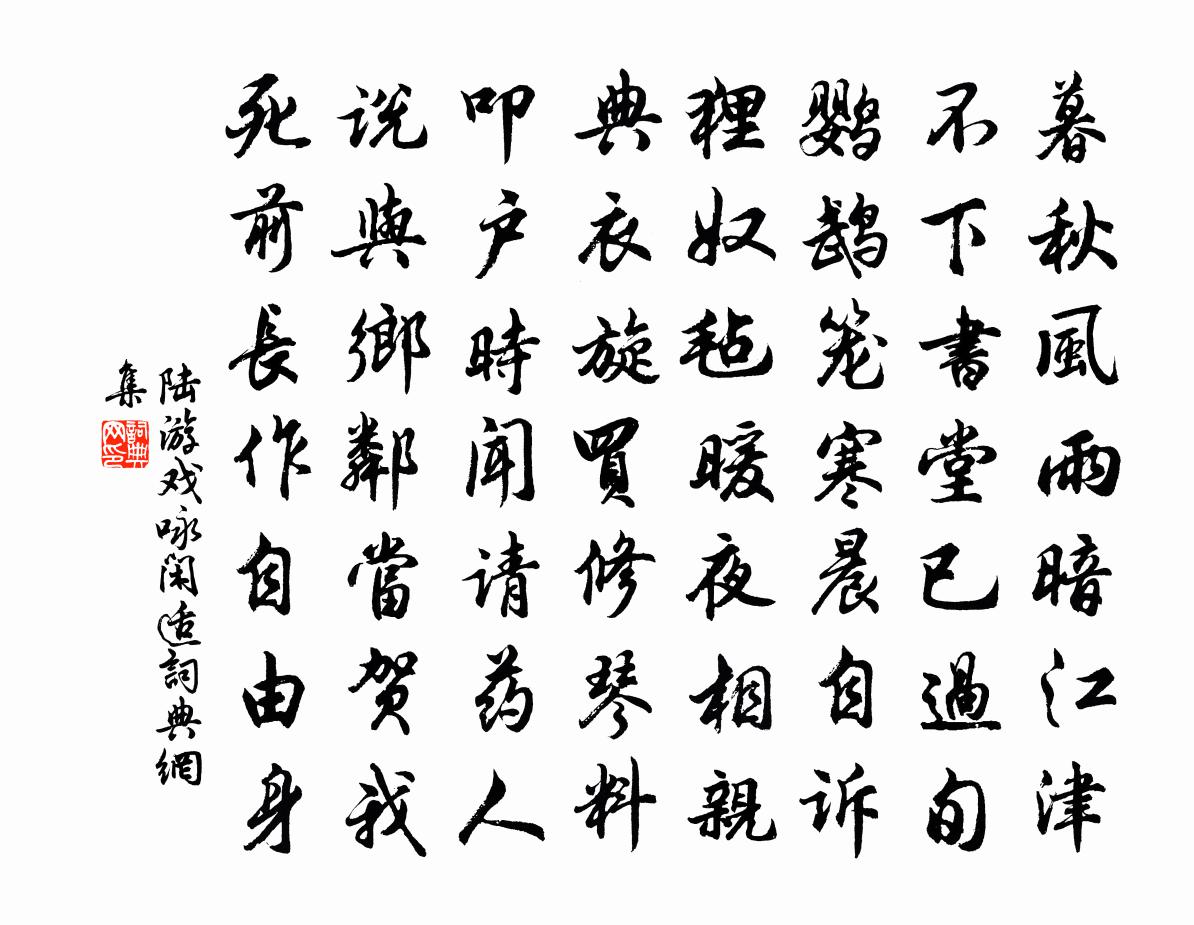 暮秋風雨暗江津
不下書堂已過旬
鹦鵡笼寒晨自訴
狸奴毡暖夜相親
典衣旋買修琴料
叩户時聞请药人
说與鄉鄰當贺我
死前長作自由身
陆游戏咏闲适詞典網
集
詞典网印